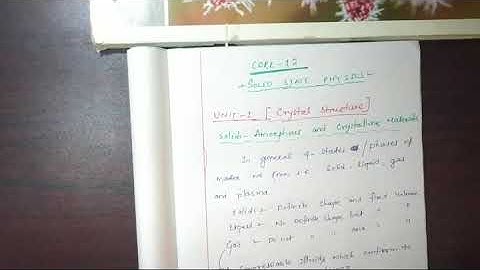 CORE-12
SOLID STATE PHYSICS
UNIT-1 [Crystal Structure]
Solids- Amorphous and Crystalline Materials
In general 4 states /phases of
matter are Solid, Liquid, gas
and plasma.
Solid :- Definite shape and fixed volume
Liquid :- No definite shape but " "
Gas :- Do not " "